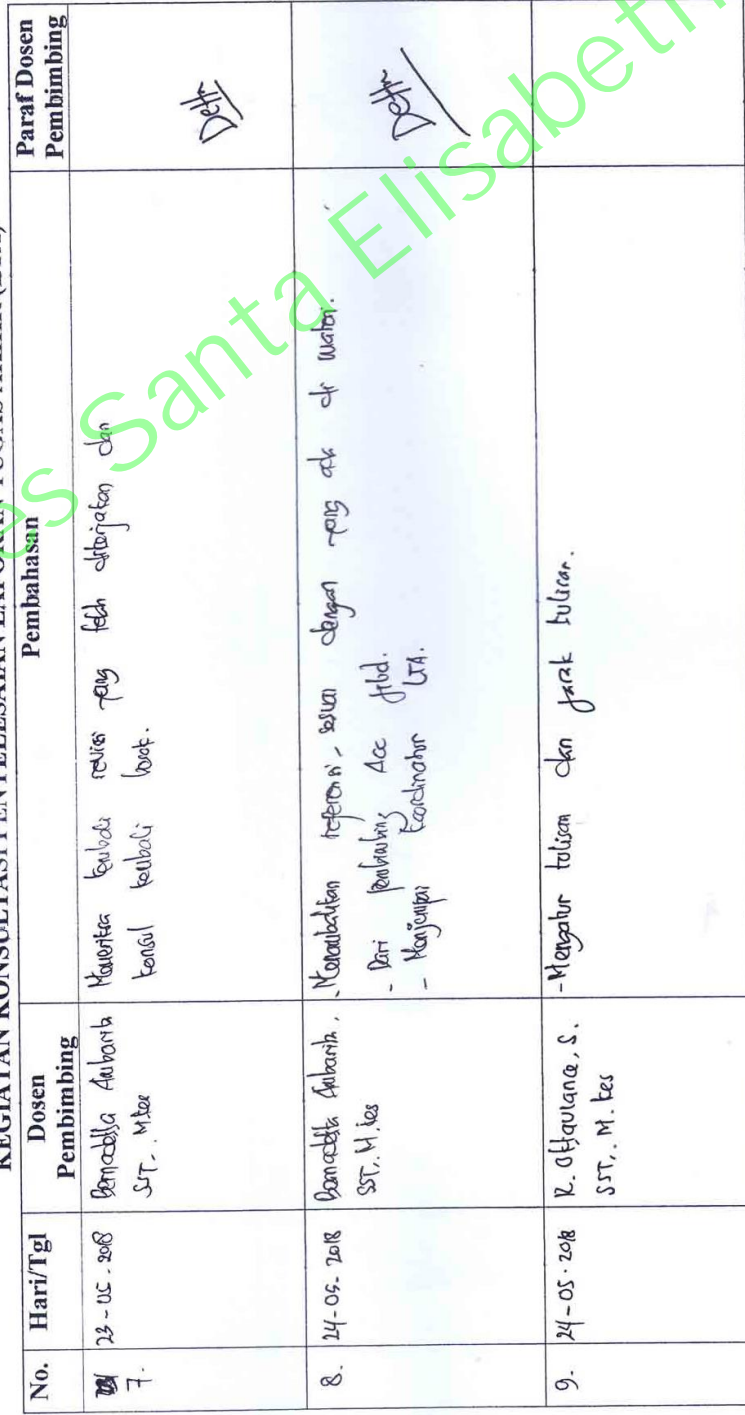 KEGIATAN KONSULTASI PENYELESAIAN LAPORAN TUGAS AKHIR
No. Hari/Tgl Dosen Pembimbing Pembahasan Paraf Dosen Pembimbing
7. 23-05-2018 Bernadetta Ambarita
SST,. M.kes
kembali revisi yang telah dikerjakan dan
konsul kembali besok.
8. 24-05-2018 Bernadetta Ambarita,
SST,. M.kes
- Menambahkan referensi, sesuai dengan yang ada di materi.
- Dari pembimbing Acc
- Menjumpai koordinator LTA.
9. 24-05-2018 R. Oktaviance, S.
SST,. M.kes
- Mengatur tulisan dan jarak tulisan.
es Santa Elisabeth